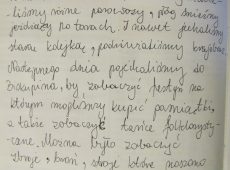 liśmy różne parowozy, gdy
przejazdy po torach. I nawet jechaliśmy
starą kolejką, podziwialiśmy krajobraz
Następnego dnia pojechaliśmy do
by zobaczyć festyn na
którym mogliśmy kupić pamiątki,
a także zobaczyć tańce folklorysty-
czne. Można było zobaczyć
stroje, broń, stroje które noszono